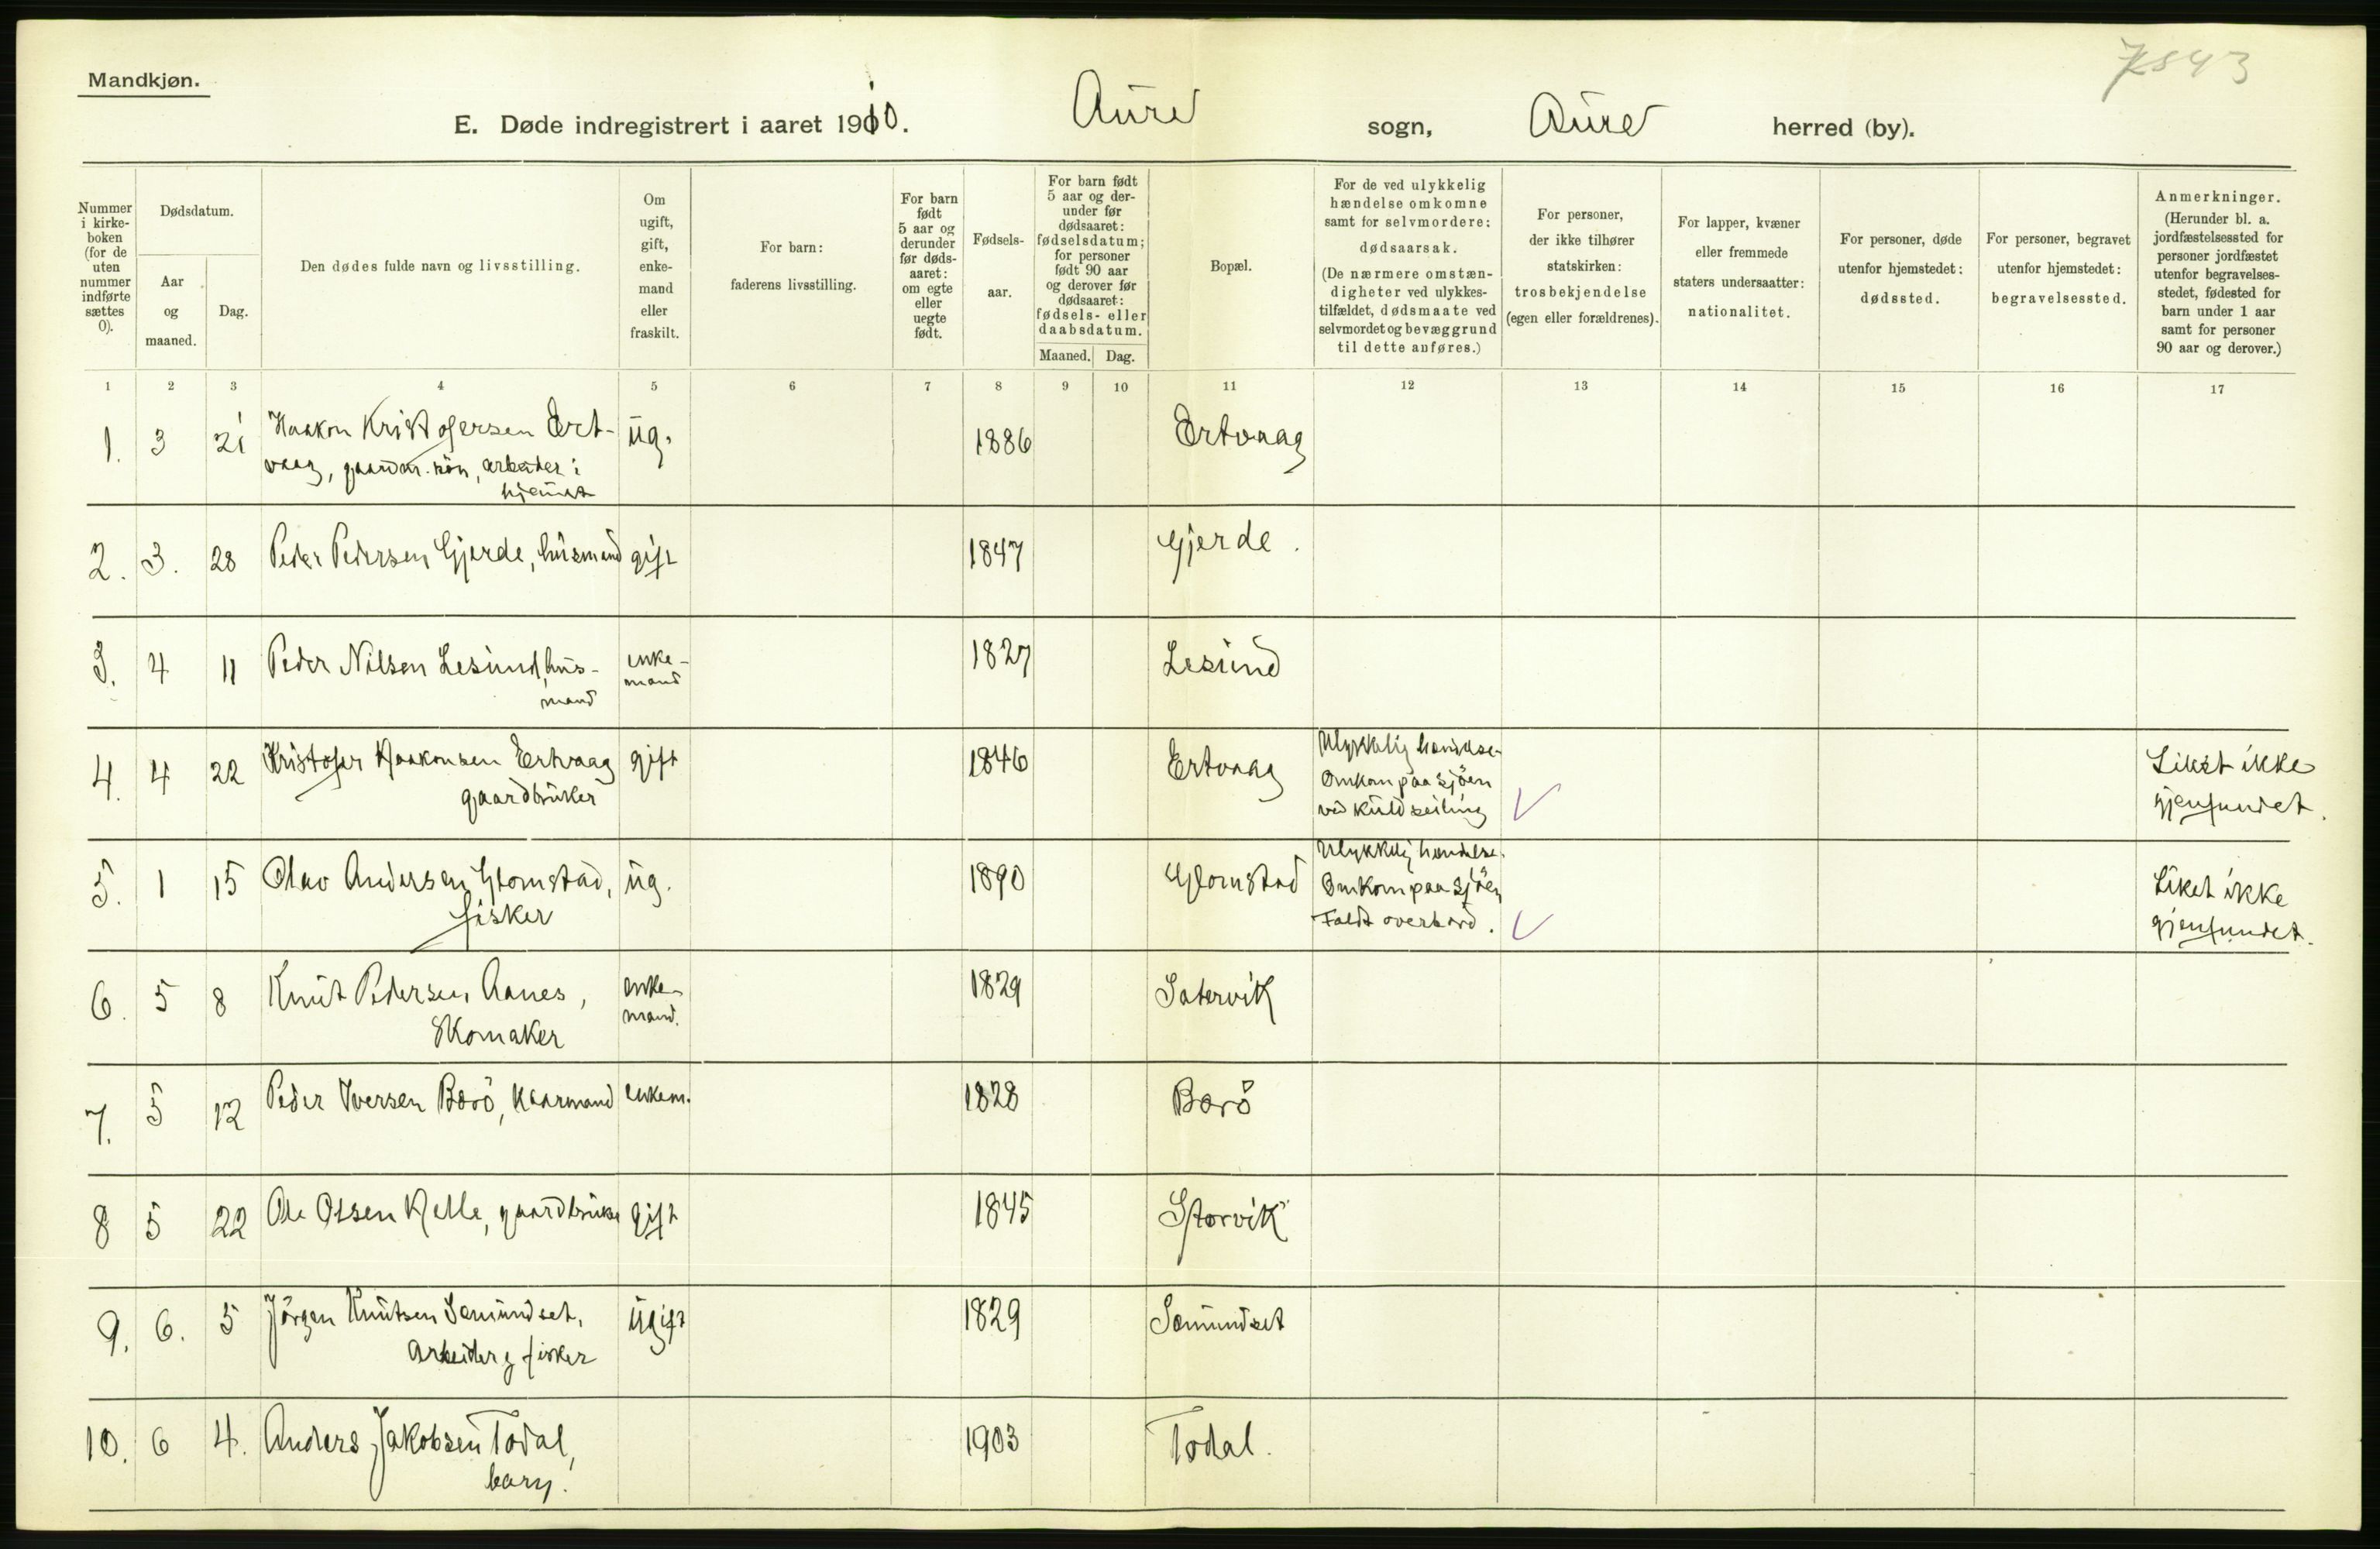 Mandkjøn.
7843
E. Døde indregistrert i aaret 1910. Aure sogn, Aure herred (by).
Nummer i kirke-boken (for de uten nummer indførte sættes 0).
Dødsdatum.
Aar og maaned.
Dag.
Den dødes fulde navn og livsstilling.
Om ugift, gift, enke-mand eller fraskilt.
For barn: faderens livsstilling.
For barn født 5 aar og derunder før døds-aaret: om egte eller uegte født.
Fødsels-aar.
For barn født 5 aar og der-under før dødsaaret: fødselsdatum; for personer født 90 aar og derover før dødsaaret: fødsels- eller daabsdatum.
Maaned. Dag.
Bopæl.
For de ved ulykkelig hændelse omkomne samt for selvmordere: dødsaarsak. (De nærmere omstæn-digheter ved ulykkes-tilfældet, dødsmaate ved selvmordet og bevæggrund til dette anføres.)
For personer, der ikke tilhører statskirken: trosbekjendelse (egen eller forældrenes).
For lapper, kvæner eller fremmede staters undersaatter: nationalitet.
For personer, døde utenfor hjemstedet: dødssted.
For personer, begravet utenfor hjemstedet: begravelsessted.
Anmerkninger. (Herunder bl. a. jordfæstelsessted for personer jordfæstet utenfor begravelses-stedet, fødested for barn under 1 aar samt for personer 90 aar og derover.)
1 2 3 4 5 6 7 8 9 10 11 12 13 14 15 16 17
1. 3 21 Haakon Kristofersen Ert- ug. 1886 Ertvaag
vaag, gaardbr. søn, arbeider i
hjemmet
2. 3. 28 Peder Pedersen Gjerde, husmand gift 1847 Gjerde.
3. 4 11 Peder Nilsen Lesund, hus- enke- 1827 Lesund
mand mand
4. 4 22 Kristofer Haakonsen Ertvaag gift 1846 Ertvaag Ulykkelig hændelse. Liket ikke
gaardbruker Omkom paa sjöen gjenfundet.
ved kuldseiling
5. 1 15 Olav Andersen Glomstad, ug. 1890 Glomstad Ulykkelig hændelse. Liket ikke
fisker Omkom paa sjöen gjenfundet.
Faldt overbord.
6. 5 8 Knut Pedersen Aanes, enke- 1829 Satervik
Skomaker mand.
7. 5 12 Peder Iversen Barö, kaarmand enkem. 1828 Barö
8 5 22 Ole Olsen Kjelle, gaardbruker gift 1845 Storvik
9. 6. 5 Jörgen Knutsen Semundset, ugift 1829 Semundset
arbeider og fisker
10. 6 4. Anders Jakobsen Todal, 1903 Todal.
barn.